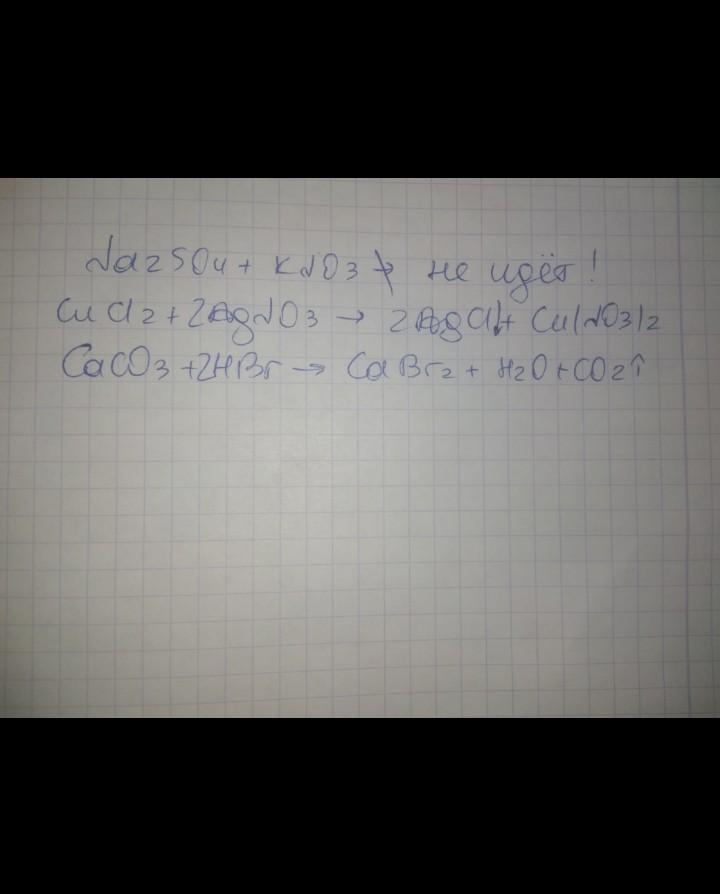 Na2SO4 + KNO3 ↛ не идёт!
CuCl2 + 2AgNO3 → 2AgCl↓ + Cu(NO3)2
CaCO3 + 2HBr → CaBr2 + H2O + CO2↑